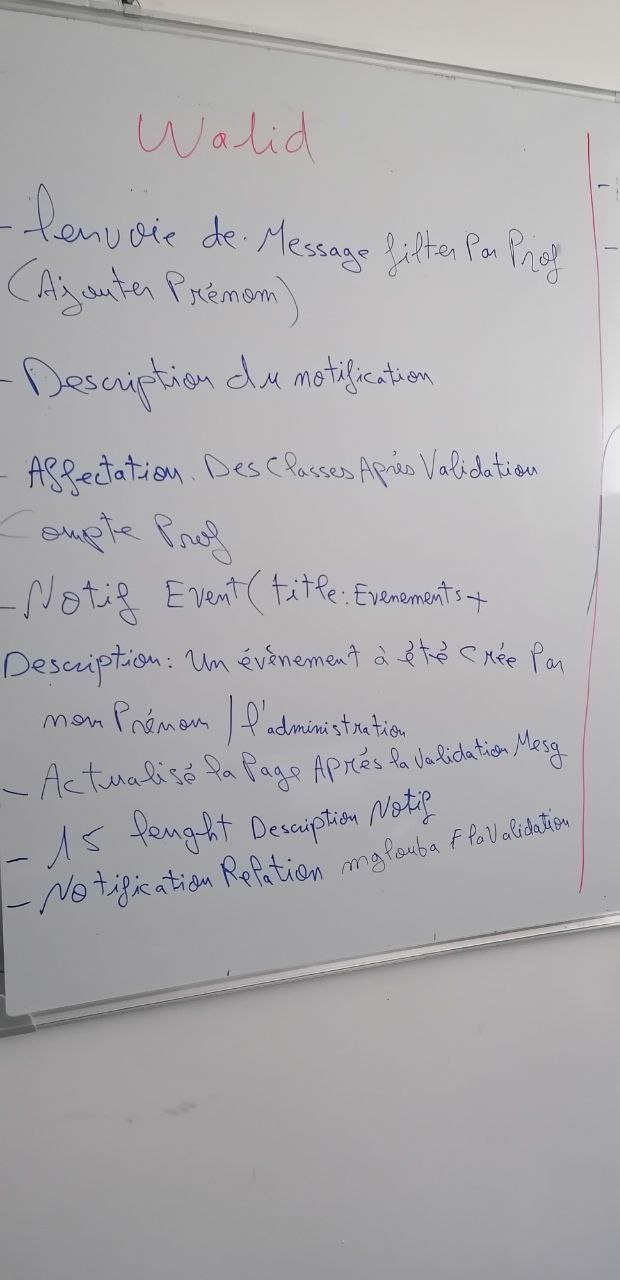 Walid
- l'envoie de Message filter Par Prof
(Ajouter Prénom)
- Description du notification
- Affectation Des Classes Après Validation
Compte Prof
- Notif Event (title: Evenements +
Description: Un évènement à été Crée Par
nom Prénom / l'administration
- Actualisé la Page Après la Validation Mesg
- 15 lenght Description Notif
- Notification Relation mglouba F la Validation